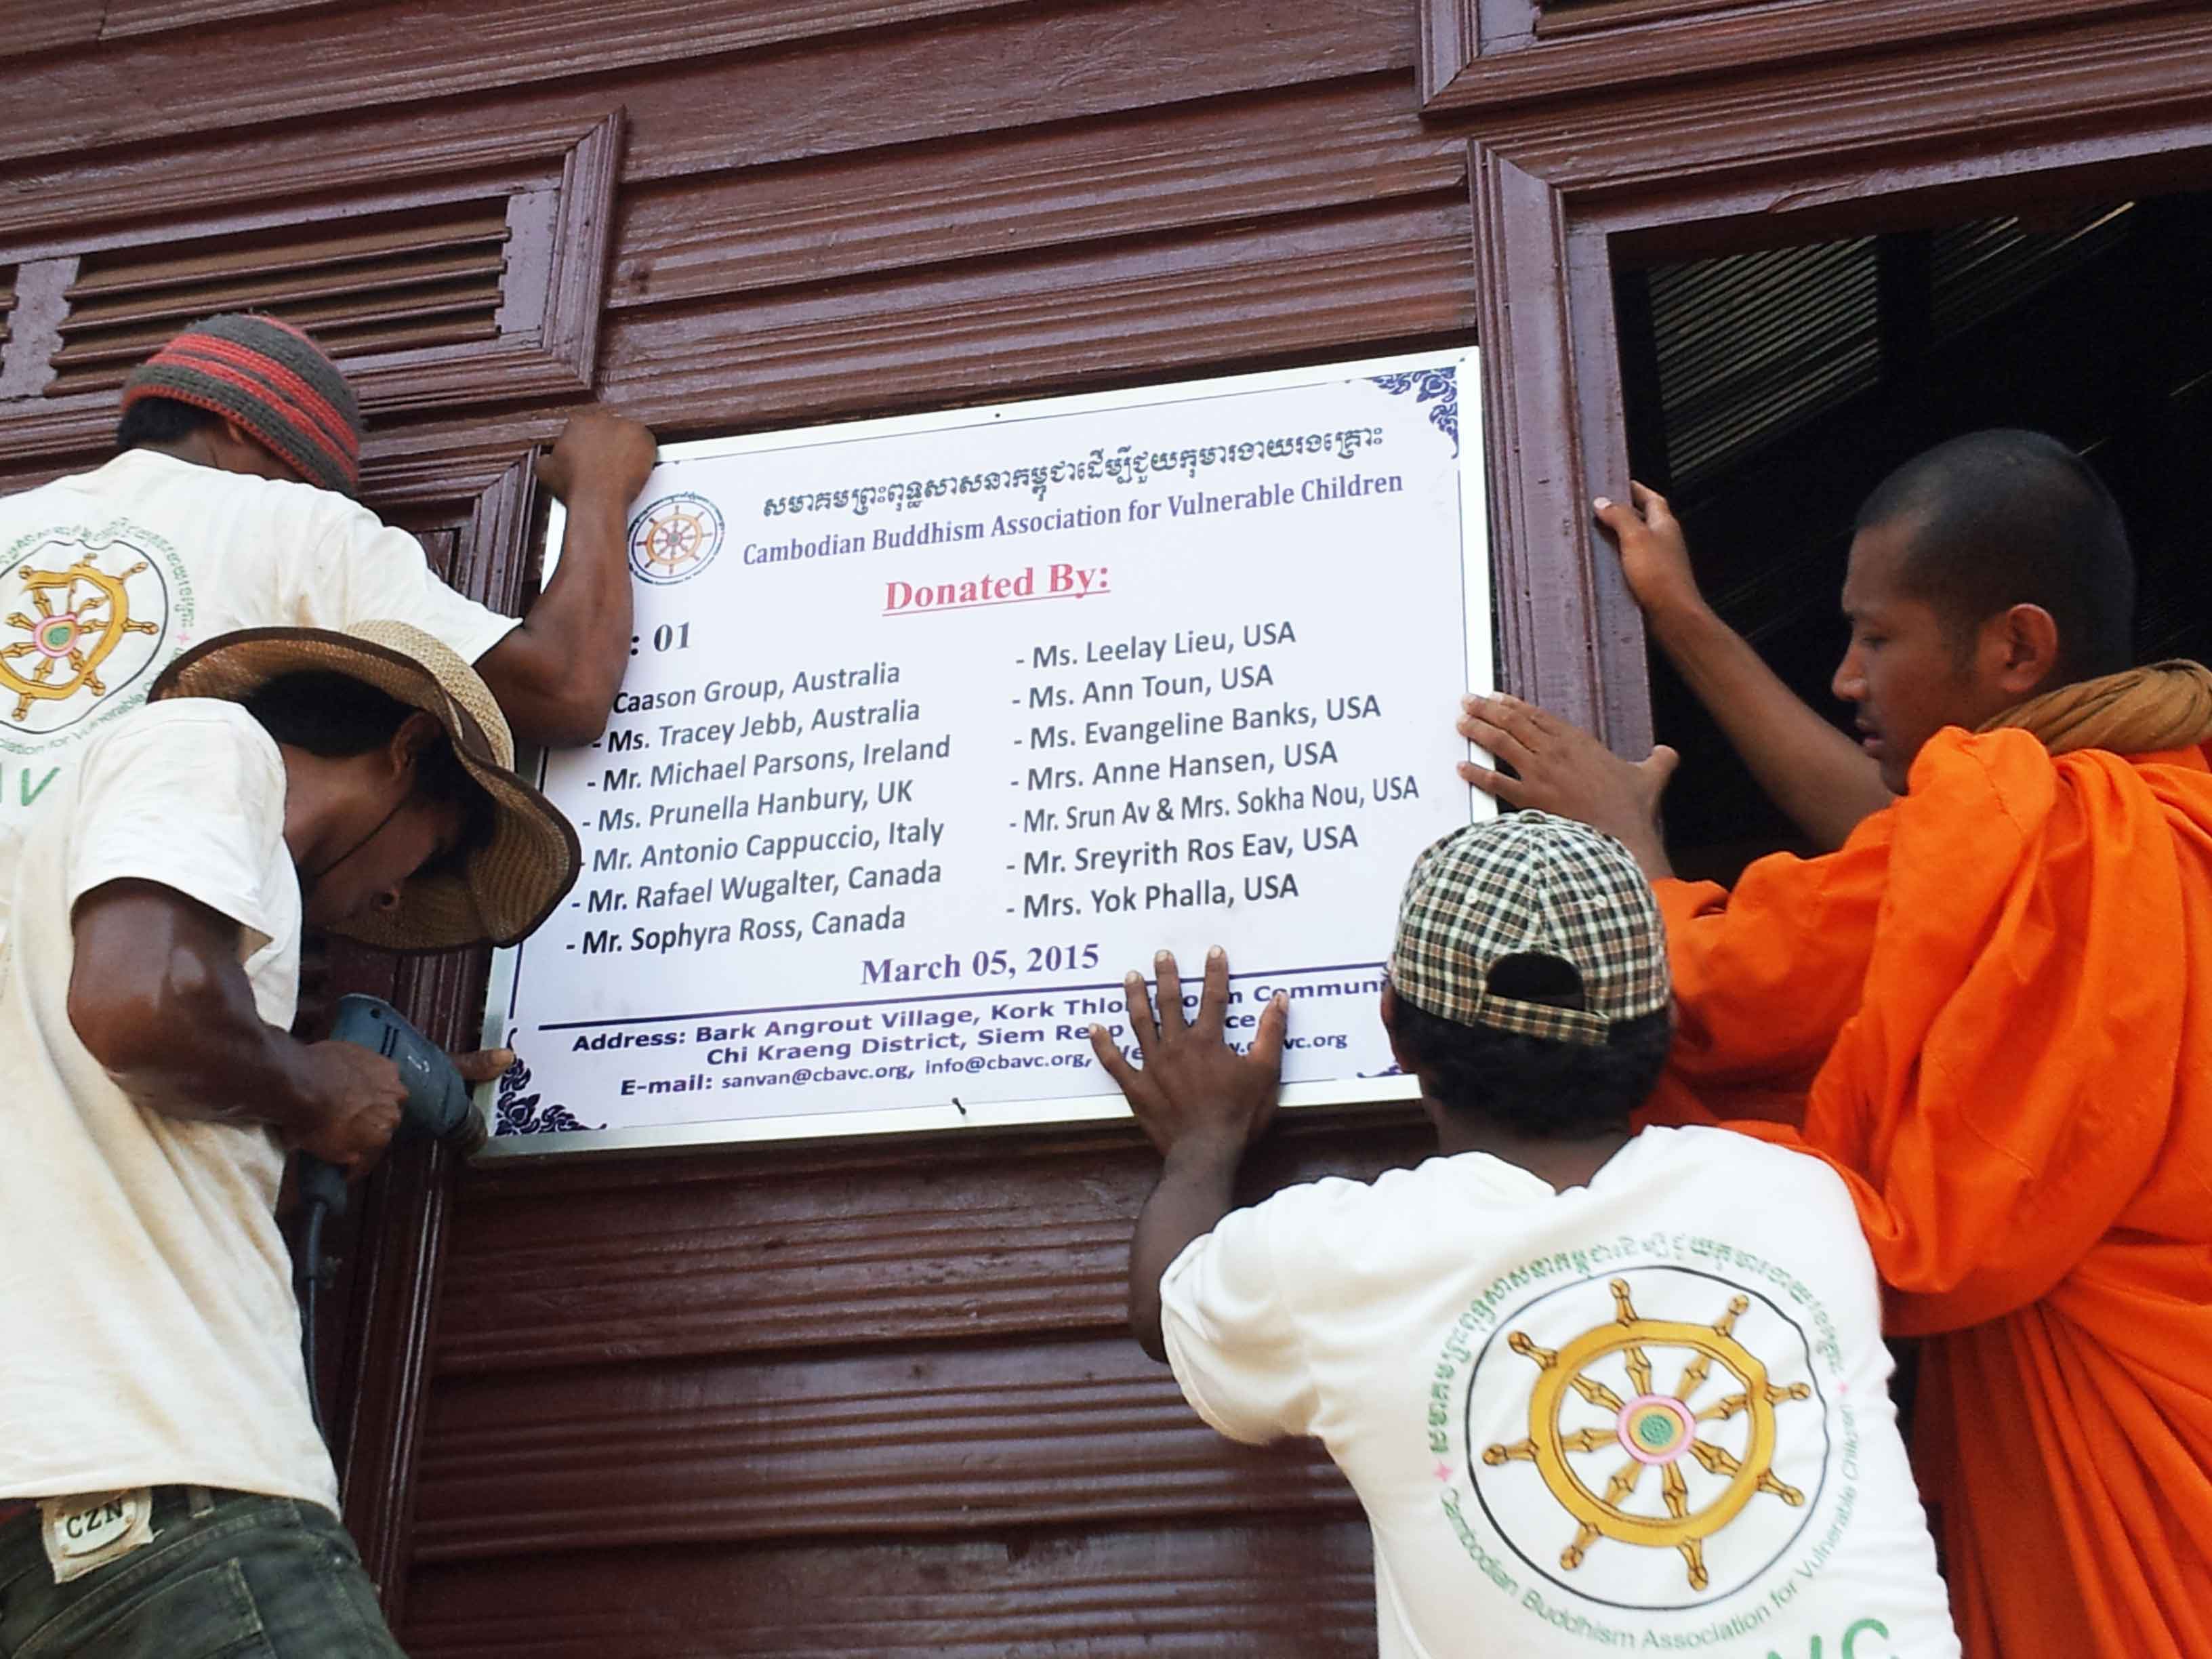 សមាគមព្រះពុទ្ធសាសនាកម្ពុជាដើម្បីជួយកុមារងាយរងគ្រោះ
Cambodian Buddhism Association for Vulnerable Children
Donated By:
: 01
Caason Group, Australia
- Ms. Tracey Jebb, Australia
- Mr. Michael Parsons, Ireland
- Ms. Prunella Hanbury, UK
- Mr. Antonio Cappuccio, Italy
- Mr. Rafael Wugalter, Canada
- Mr. Sophyra Ross, Canada
- Ms. Leelay Lieu, USA
- Ms. Ann Toun, USA
- Ms. Evangeline Banks, USA
- Mrs. Anne Hansen, USA
- Mr. Srun Av & Mrs. Sokha Nou, USA
- Mr. Sreyrith Ros Eav, USA
- Mrs. Yok Phalla, USA
March 05, 2015
Address: Bark Angrout Village, Kork Thlo
Chi Kraeng District, Siem Reap
E-mail: sanvan@cbavc.org, info@cbavc.org,
CZN
សមាគមព្រះពុទ្ធសាសនាកម្ពុជាដើម្បីជួយកុមារងាយរងគ្រោះ
Cambodian Buddhism Association for Vulnerable Children
VC